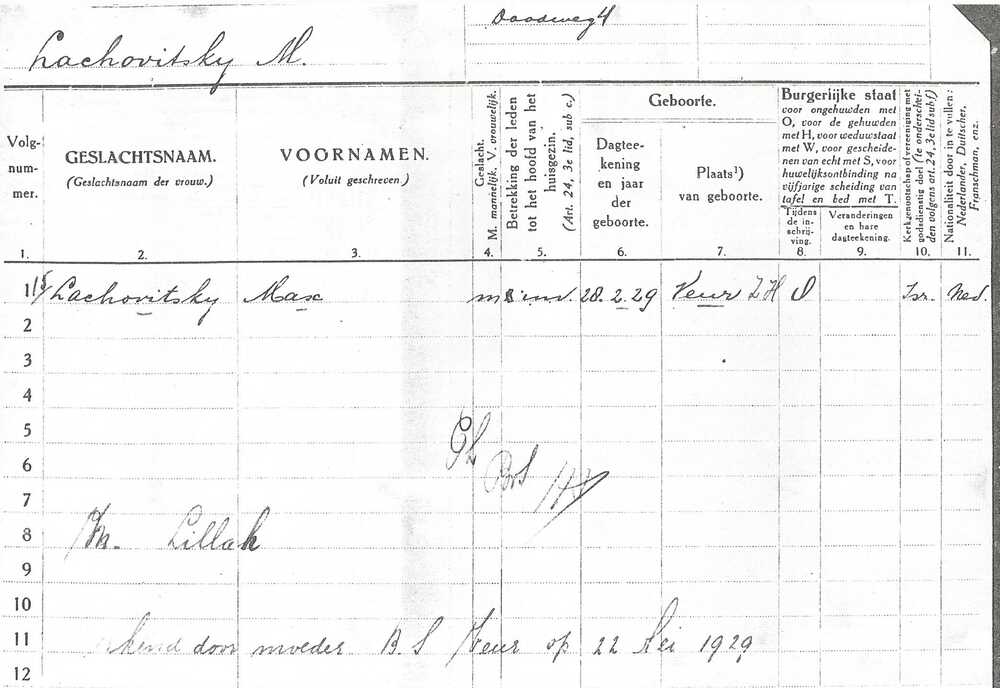 Lachovitsky M.
Volg-
num-
mer.
GESLACHTSNAAM.
(Geslachtsnaam der vrouw.)
VOORNAMEN.
(Voluit geschreven.)
Geslacht.
M. mannelijk. V. vrouwelijk.
Betrekking der leden
tot het hoofd van het
huisgezin.
(Art. 24, 3e lid, sub c.)
Geboorte.
Dagtee-
kening
en jaar
der
geboorte.
Plaats¹)
van geboorte.
Burgerlijke staat
voor ongehuwden met
O, voor de gehuwden
met H, voor weduwstaat
met W, voor gescheide-
nen van echt met S, voor
huwelijksontbinding na
vijfjarige scheiding van
tafel en bed met T.
Tijdens
de in-
schrij-
ving.
Veranderingen
en hare
dagteekening.
Kerkgenootschap of vereeniging met
godsdienstig doel (te onderschei-
den volgens art. 24, 3e lid sub f)
Nationaliteit door in te vullen:
Nederlander, Duitscher,
Franschman, enz.
1. 2. 3. 4. 5. 6. 7. 8. 9. 10. 11.
1 Lachovitsky Max m inw. 28.2.29 Veur Z H O Isr. Ned.
2
3
4
5
6
7
8 Lillak
9
10
11 door moeder B S Veur op 22 Mei 1929
12